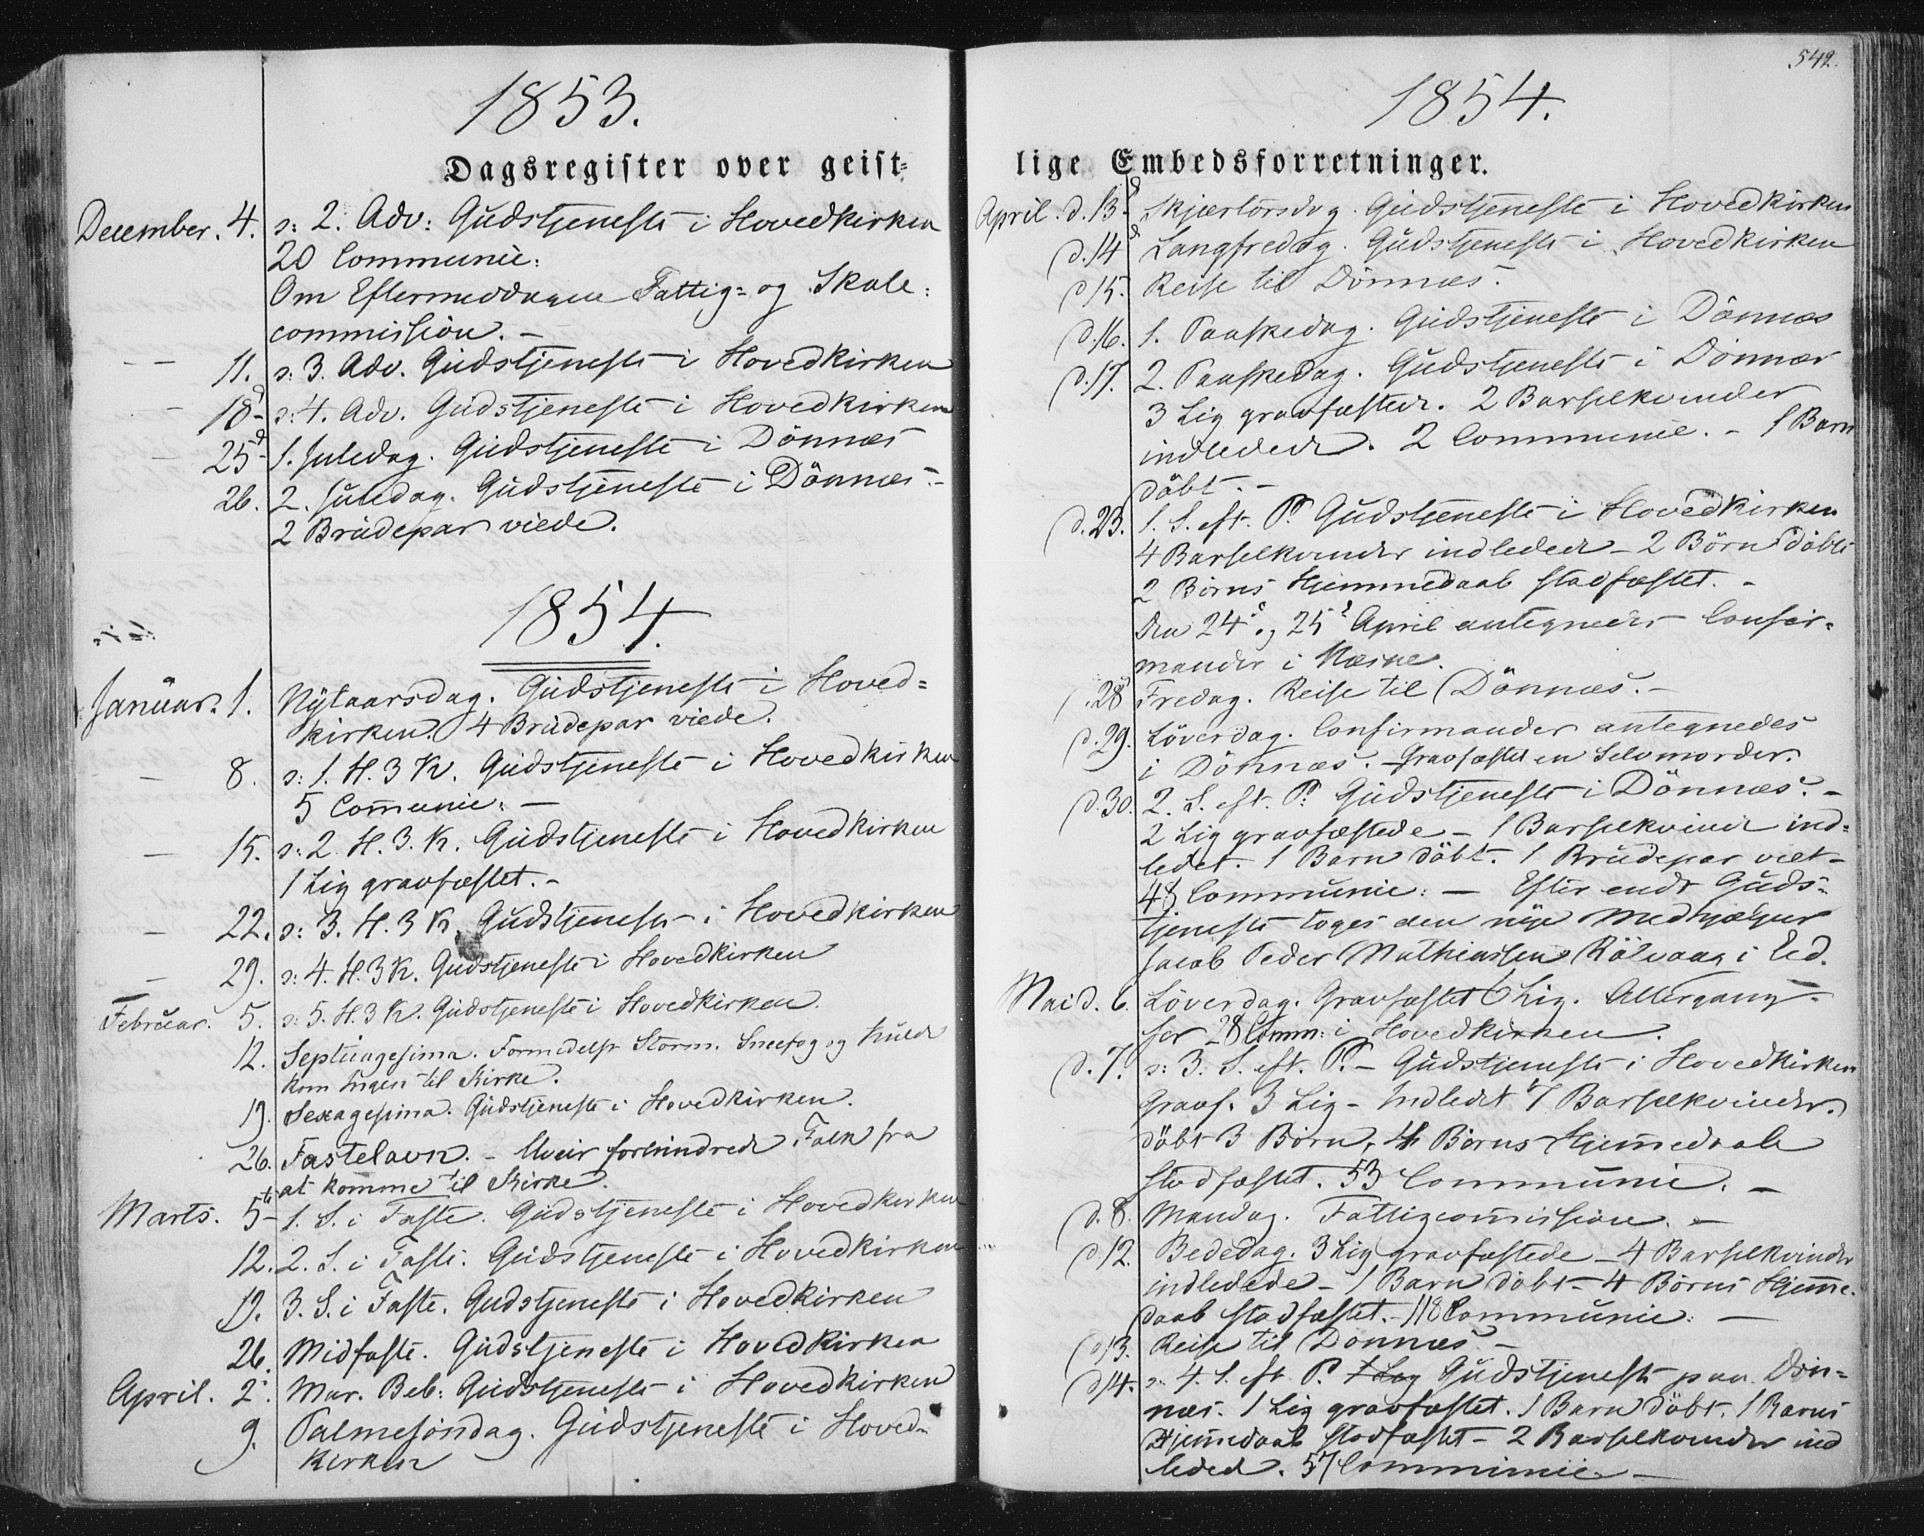 1853.
Dagsregister over geist-
December. 4. s: 2. Adv: Gudstjeneste i Hovedkirken
20 Communic:
Om Eftermiddagen Fattig- og Skole-
commission. -
11. s: 3. Adv. Gudstjeneste i Hovedkirken
18d s: 4. Adv. Gudstjeneste i Hovedkirken
25d 1. Juledag. Gudstjeneste i Dönnæs
26. 2. Juledag. Gudstjeneste i Dönnæs. -
2 Brudepar viede.
1854.
Januar. 1. Nytaarsdag. Gudstjeneste i Hoved-
kirken. 4 Brudepar viede.
8. s: 1. H. 3 K. Gudstjeneste i Hovedkirken
5 Com̅unic: -
15. s: 2. H. 3. K. Gudstjeneste i Hovedkirken
1 Lig gravfæstet. -
22. s: 3. H. 3 K. Gudstjeneste i Hovedkirken
29. s: 4. H. 3 K. Gudstjeneste i Hovedkirken
Februar. 5. s: 5. H. 3 K. Gudstjeneste i Hovedkirken.
12. Septuagesima. Formedelst Storm. Sneefog og Kulde
kom Ingen til Kirke.
19. Sexagesima. Gudstjeneste i Hovedkirken.
26. Fastelavn. - Uveir forhindrede Folk fra
at komme til Kirke.
Marts. 5te 1. S. i Faste. Gudstjeneste i Hovedkirken
12. 2. S. i Faste. Gudstjeneste i Hovedkirken
19. 3. S. i Faste. Gudstjeneste i Hovedkirken
26. Midfaste. Gudstjeneste i Hovedkirken
April. 2. Mar. Beb: Gudstjeneste i Hovedkirken
9. Palmesöndag. Gudstjeneste i Hoved-
kirken
542.
1854.
lige Embedsforretninger.
April. d. 13d Skjærtorsdag. Gudstjeneste i Hovedkirken
d. 14d Langfredag. Gudstjeneste i Hovedkirken
d 15. Reise til Dönnæs.
d. 16. 1. Paaskedag. Gudstjeneste i Dönnæs
d. 17. 2. Paaskedag. Gudstjeneste i Dönnæs
3 Lig gravfæstede. 2 Barselkvinder
indledede. 2 Communic. - 1 Barn
döbt. -
d. 23. 1. S. eft. P. Gudstjeneste i Hovedkirken
4 Barselkvinder indledede - 2 Börn döbte
2 Börns Hjemmedaab stadfæstet. -
Den 24de og 25de April antegnedes Confir-
mander i Næsne.
28 Fredag. Reise til Dönnæs. -
d. 29. Löverdag. Confirmander antegnedes
i Dönnæs. Gravfæstet en Selvmorder.
d. 30. 2. S. eft. P. Gudstjeneste i Dönnæs. -
2 Lig gravfæstede - 1 Barselkvinde ind-
ledet. 1 Barn döbt. 1 Brudepar viet -
48 Communic: - Efter endt Guds-
tjeneste toges den nye Medhjælper
Jacob Peder Mathiassen Rölvaag i Ed.
Mai d. 6. Löverdag. Gravfæstet 6 Lig. Altergang
for 28 Comm: i Hovedkirken.
d. 7. s: 3. S. eft. P. - Gudstjeneste i Hovedkirken
Gravf. 3 Lig - Indledet 7 Barselkvinder.
döbt 3 Börn, 4 Börns Hjem̅edaab
stadfæstet. 53 Communic. -
d. 8. Mandag. Fattigcom̅ission. -
d 12. Bededag. 3 Lig gravfæstede - 4 Barselkvinder
indledede - 1 Barn döbt - 4 Börns Hjem̅e-
daab stadfæstet. - 118 Communic: -
d 13. Reise til Dönnæs. -
d 14. s: 4. S. eft P. Gudstjeneste paa Dön-
næs. 1 Lig gravfæstet. 1 Barn döbt. 1 Barns
Hjem̅edaab stadfæstet - 2 Barselkvinder ind
ledede. 57 Communic -